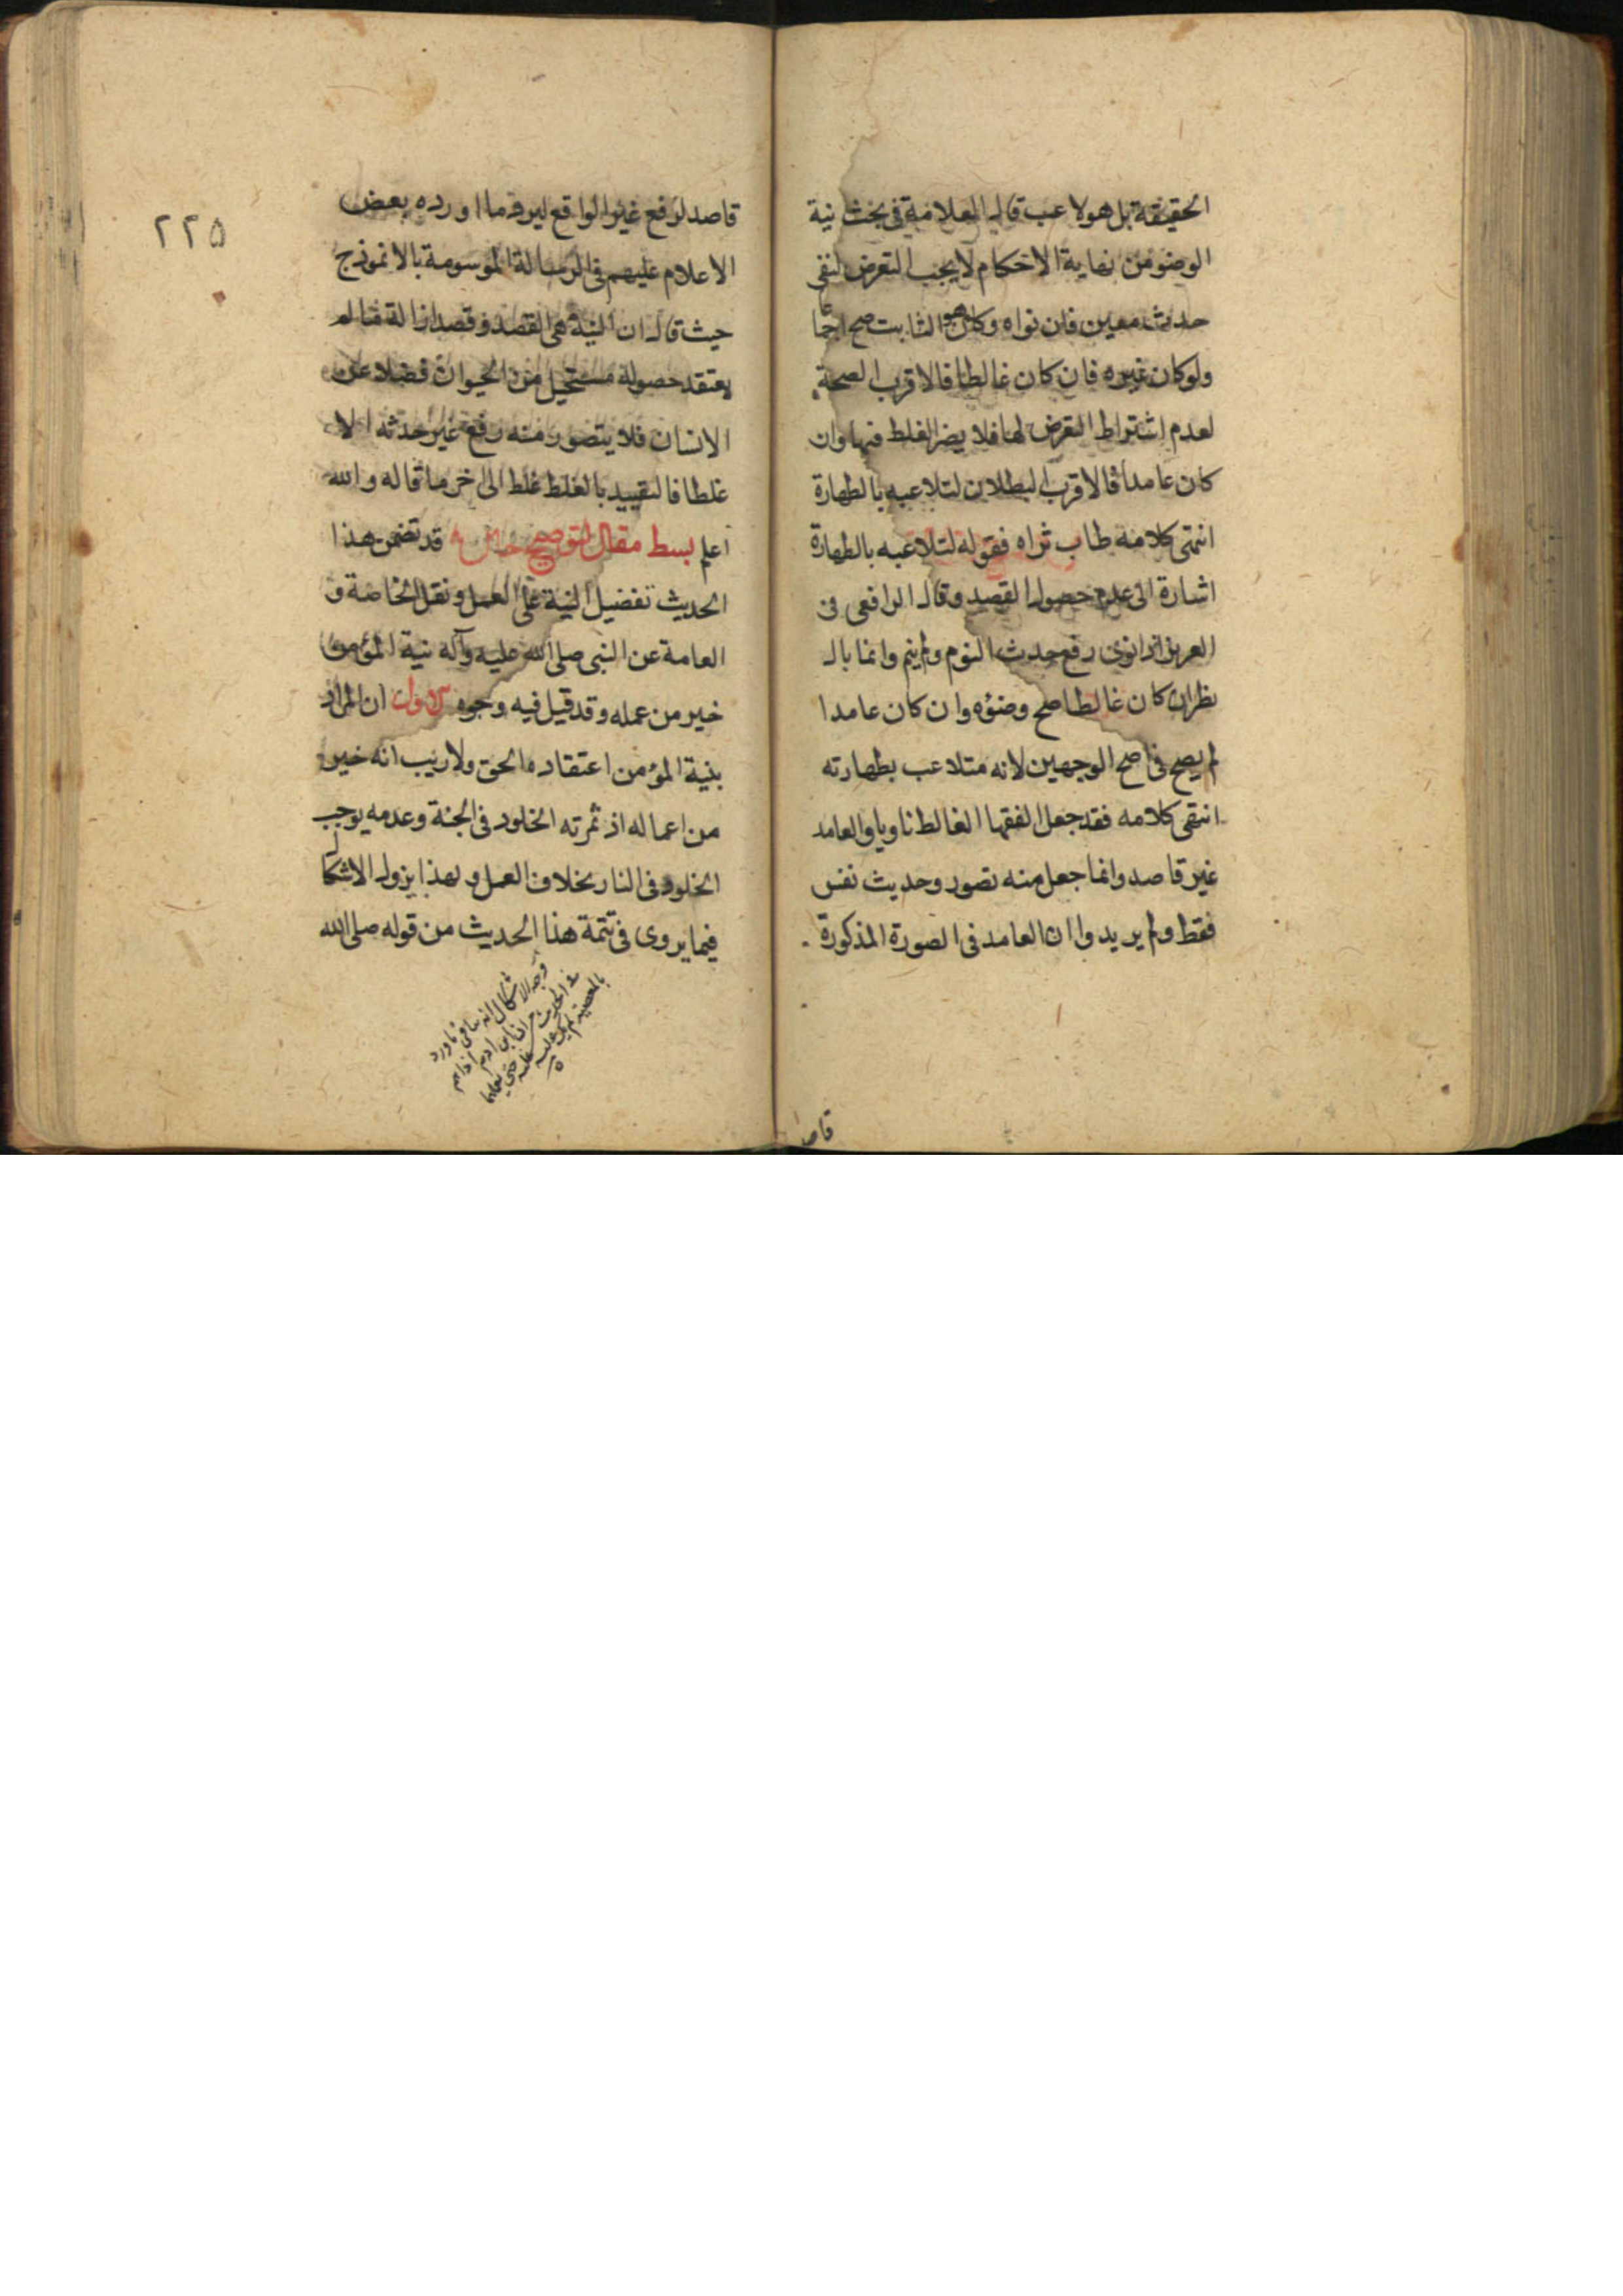 الحقيقة بل هو لاعب قال العلامة فى بحث نية
الوضوء من نهاية الاحكام لا يجب التعرض لنفى
حدث معين فان نواه وكان هو الثابت صح اجماعا
ولو كان غيره فان كان غالطا فالاقرب الصحة
لعدم اشتراط التعرض لها فلا يضر الغلط فيها وان
كان عامدا فالاقرب البطلان لتلاعبه بالطهارة
انتهى كلامه طاب ثراه فقوله لتلاعبه بالطهارة
اشارة الى عدم حصول القصد وقال الرافعى فى
العزيز اذا نوى رفع حدث النوم ولم ينم وانما بال
نظر ان كان غالطا صح وضوءه وان كان عامدا
لم يصح فى اصح الوجهين لانه متلاعب بطهارته
انتهى كلامه فقد جعل الفقها الغالط ناويا والعامد
غير قاصد وانما جعل منه تصور وحديث نفس
فقط ولم يريدوا ان العامد فى الصورة المذكورة
قاصد
٢٢٥
قاصد لرفع غير الواقع ليرد ما اورده بعض
الاعلام عليهم فى الرسالة الموسومة بالانموذج
حيث قال ان النية هى القصد وقصد ازالة ما لم
يعتقد حصوله مستحيل من الحيوان فضلا عن
الانسان فلا يتصور منه رفع غير حدثه الا
غلطا فالتقييد بالغلط غلط الى اخر ما قاله والله
اعلم بسط مقال لتوضيح حال قد تضمن هذا
الحديث تفضيل النية على العمل ونقل الخاصة و
العامة عن النبى صلى الله عليه وآله نية المؤمن
خير من عمله وقد قيل فيه وجوه الاول ان المراد
بنية المؤمن اعتقاده الحق ولا ريب انه خير
من اعماله اذ ثمرته الخلود فى الجنة وعدمه يوجب
الخلود فى النار بخلاف العمل وبهذا يزول الاشكال
فيما يروى فى تتمة هذا الحديث من قوله صلى الله
وجه الاشكال انه ينافى ما ورد
فى الحديث من ان ابن ادم اذا هم
بالمعصية لم يكتب عليه حتى يعملها